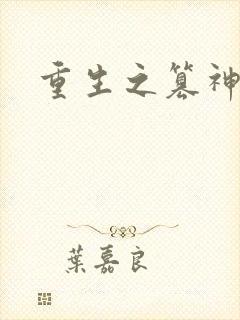 重生之篡神
葉嘉良